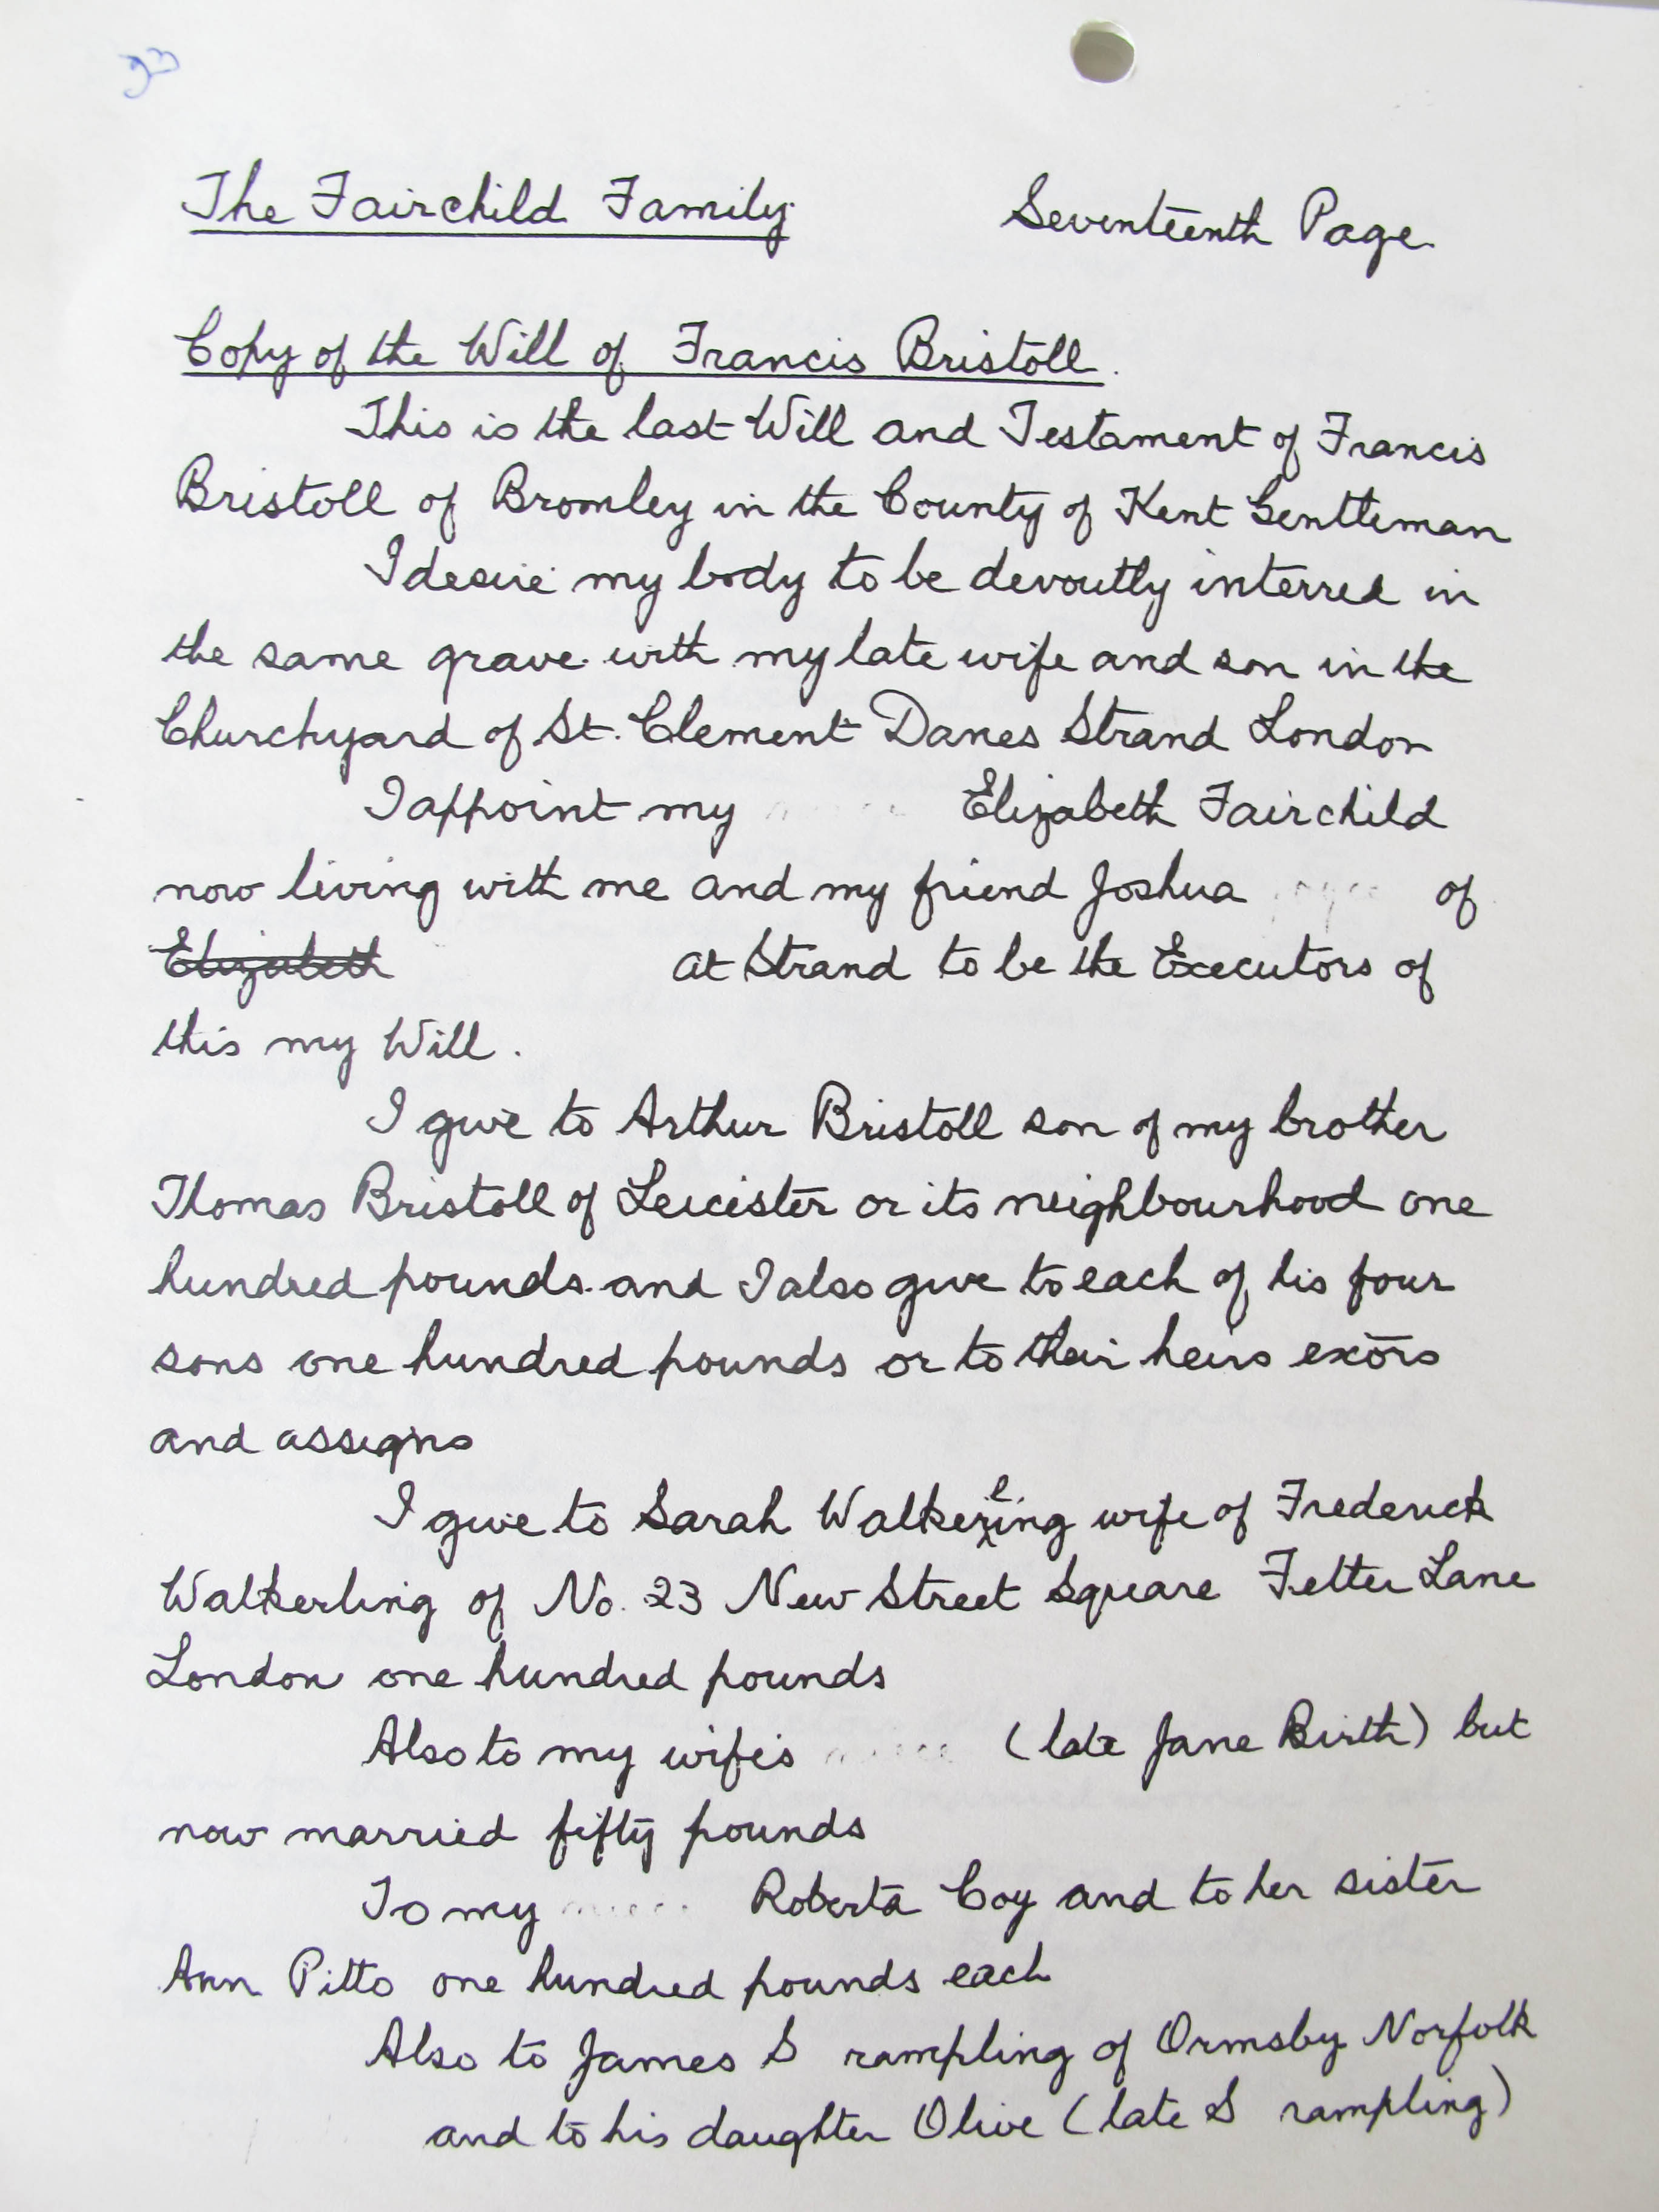 The Fairchild Family. Seventeenth Page.
Copy of the Will of Francis Bristoll.
This is the last Will and Testament of Francis
Bristoll of Bromley in the County of Kent Gentleman
I desire my body to be devoutly interred in
the same grave with my late wife and son in the
Churchyard of St. Clement Danes Strand London
I appoint my niece Elizabeth Fairchild
now living with me and my friend Joshua of
Elizabeth at Strand to be the Executors of
this my Will.
I give to Arthur Bristoll son of my brother
Thomas Bristoll of Leicister or its neighbourhood one
hundred pounds and I also give to each of his four
sons one hundred pounds or to their heirs exōrs
and assigns
I give to Sarah Walkerling wife of Frederick
Walkerling of No. 23 New Street Square Fetter Lane
London one hundred pounds
Also to my wife's niece (late Jane Birth) but
now married fifty pounds
To my niece Roberta Coy and to her sister
Ann Pitto one hundred pounds each
Also to James S rampling of Ormsby Norfolk
and to his daughter Olive (late S rampling)